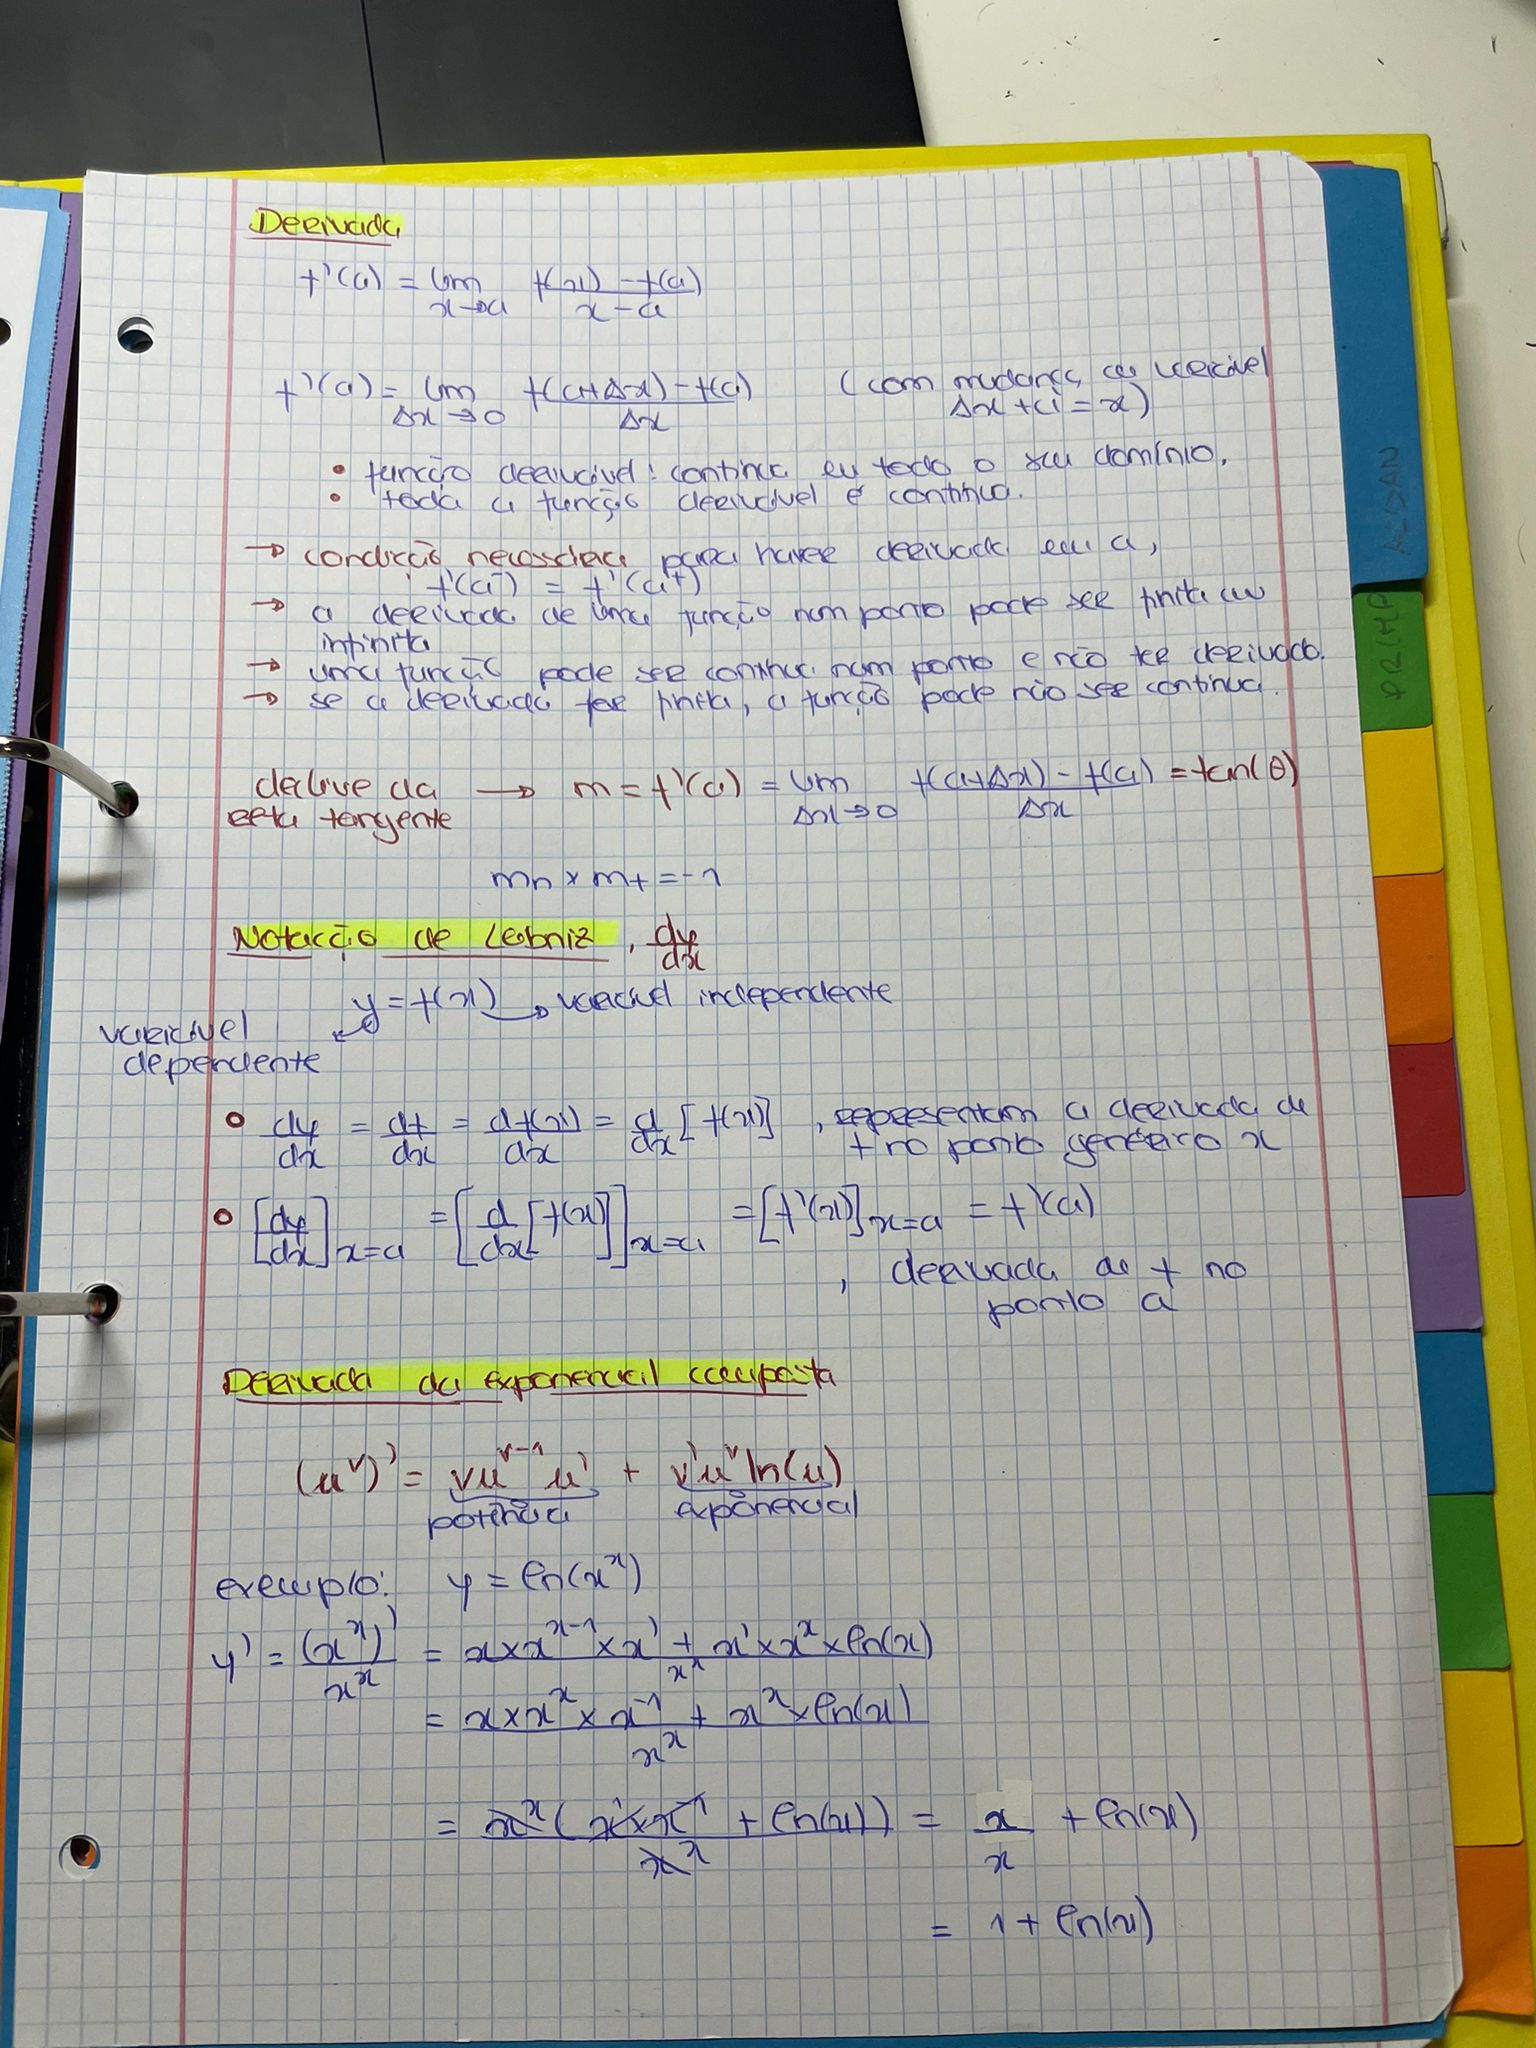 Derivada
f'(a) = lim x→a f(x) - f(a) / x - a
f'(a) = lim Δx→0 f(a+Δx) - f(a) / Δx (com mudança de variável
Δx + a = x)
• função derivável: contínua em todo o seu domínio.
• toda a função derivável é contínua.
→ condição necessária para haver derivada em a,
f'(a⁻) = f'(a⁺)
→ a derivada de uma função num ponto pode ser finita ou
infinita
→ uma função pode ser contínua num ponto e não ter derivada.
→ se a derivada for finita, a função pode não ser contínua.
declive da → m = f'(a) = lim Δx→0 f(a+Δx) - f(a) / Δx = tan(θ)
reta tangente
mn × mt = -1
Notação de Leibniz, dy/dx
y = f(x) → variável independente
variável
dependente
• dy/dx = df/dx = df(x)/dx = d/dx [f(x)], representam a derivada de
f no ponto genérico x
• [dy/dx]x=a = [d/dx [f(x)]]x=a = [f'(x)]x=a = f'(a)
, derivada de f no
ponto a
Derivada da exponencial composta
(u^v)' = vu^(v-1) u' + v'u^v ln(u)
potência exponencial
exemplo: y = ln(x^x)
y' = (x^x)' / x^x = x × x^(x-1) × x' + x' × x^x × ln(x) / x^x
= x × x^x × x^-1 + x^x × ln(x) / x^x
= x^x (x' × x^-1 + ln(x)) / x^x = x/x + ln(x)
= 1 + ln(x)